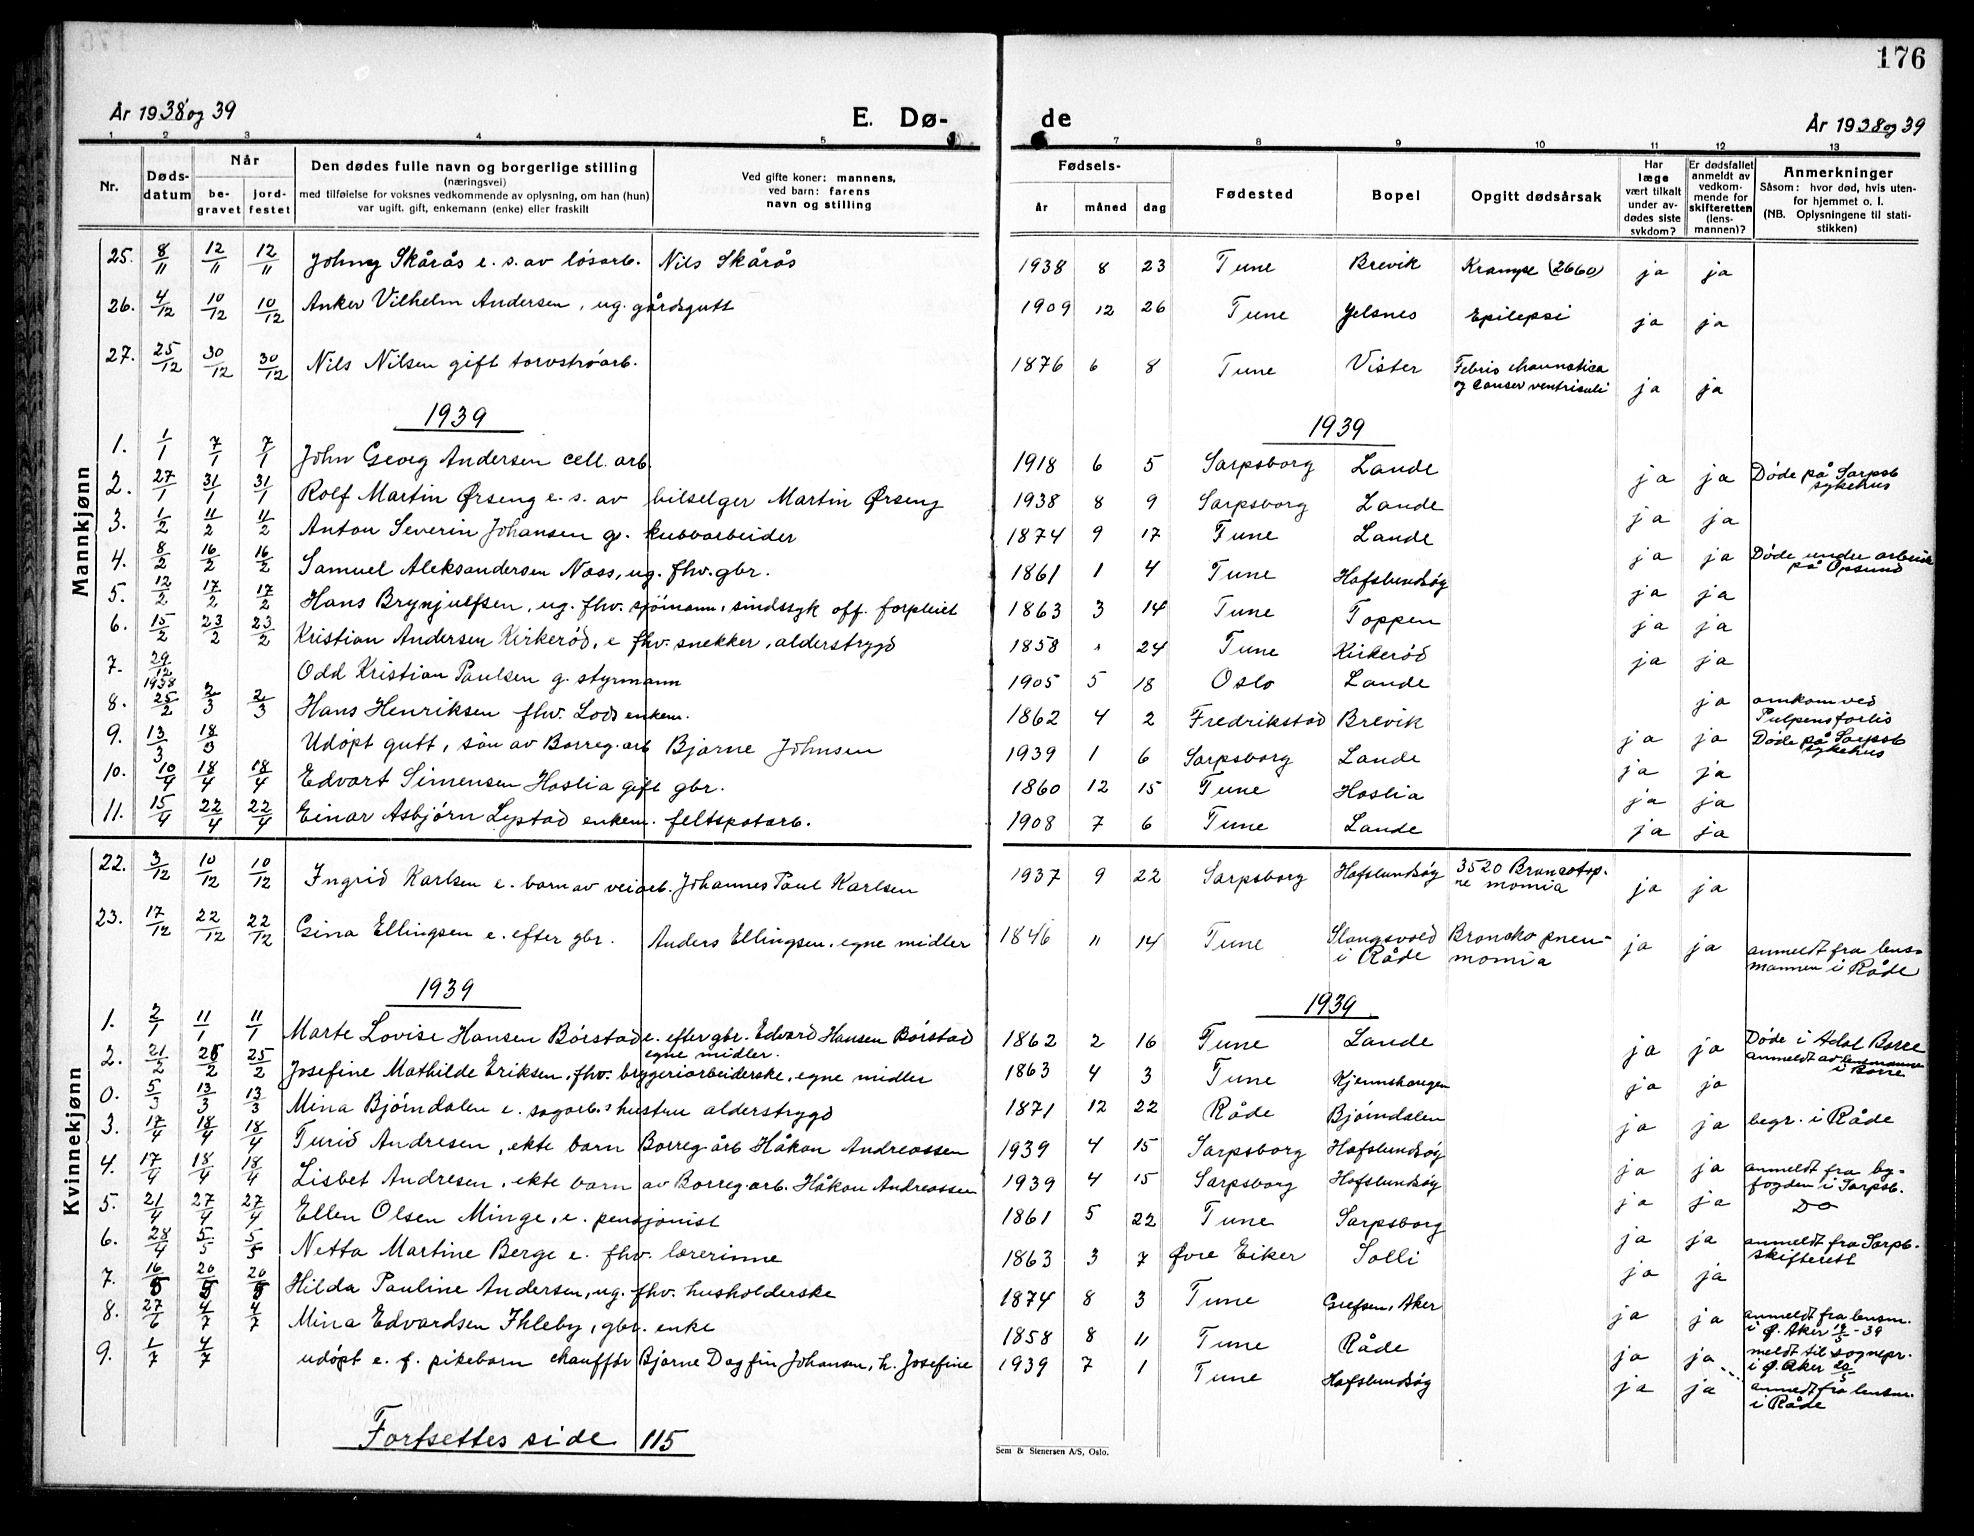 176
År 1938 og 39
E. Dø-
de
År 1938 og 39
1 2 3 4 5 7 8 9 10 11 12 13
Nr.
Døds-
datum
Når
be-
gravet
jord-
festet
Den dødes fulle navn og borgerlige stilling
(næringsvei)
med tilføielse for voksnes vedkommende av oplysning, om han (hun)
var ugift, gift, enkemann (enke) eller fraskilt
Ved gifte koner: mannens,
ved barn: farens
navn og stilling
Fødsels-
år måned dag
Fødested
Bopel
Opgitt dødsårsak
Har
læge
vært tilkalt
under av-
dødes siste
sykdom?
Er dødsfallet
anmeldt av
vedkom-
mende for
skifteretten
(lens-
mannen)?
Anmerkninger
Såsom: hvor død, hvis uten-
for hjemmet o. l.
(NB. Oplysningene til stati-
stikken)
Mannkjønn
25. 8/11 12/11 12/11 Johny Skårås e. s. av løsarb. Nils Skårås 1938 8 23 Tune Brevik Krampe (2660) ja ja
26. 4/12 10/12 10/12 Anker Vilhelm Andersen, ug. gårdsgutt 1909 12 26 Tune Jelsnes Epilepsi ja ja
27. 25/12 30/12 30/12 Nils Nilsen gift torvstrøarb. 1876 6 8 Tune Vister Febris rheumatica
og Cancer ventriculi ja ja
1939 1939
1. 1/1 7/1 7/1 John Georg Andersen cell. arb. 1918 6 5 Sarpsborg Lande ja ja Døde på Sarpsb
sykehus
2. 27/1 31/1 31/1 Rolf Martin Ørseng e. s. av bilselger Martin Ørseng 1938 8 9 Sarpsborg Lande ja ja
3. 1/2 11/2 11/2 Anton Severin Johansen g. kubbarbeider 1874 9 17 Tune Lande ja ja Døde under arbeide
på Opsund
4. 8/2 16/2 16/2 Samuel Aleksandersen Næss, ug. fhv. gbr. 1861 1 4 Tune Hafslundsøy ja ja
5. 12/2 17/2 17/2 Hans Brynjulfsen, ug. fhv. sjømann, sindssyk off. forpleiet 1863 3 14 Tune Toppen ja ja
6. 15/2 23/2 23/2 Kristian Andersen Kirkerød, e fhv. snekker, alderstrygd 1858 24 Tune Kirkerød ja ja
7. 29/12 1938 Odd Kristian Paulsen g. styrmann 1905 5 18 Oslo Lande ja omkom ved
Pulpens forlis
8. 25/2 2/3 2/3 Hans Henriksen fhv. Lods enkem. 1862 4 2 Fredrikstad Brevik ja ja Døde på Sarpsb
sykehus
9. 13/3 18/3 Udøpt gutt, søn av Borreg. arb Bjarne Johnsen 1939 1 6 Sarpsborg Lande ja ja
10. 10/4 18/4 18/4 Edvart Simensen Haslia gift gbr. 1860 12 15 Tune Haslia ja ja
11. 15/4 22/4 22/4 Einar Asbjørn Lystad enkem. feltspatarb. 1908 7 6 Tune Lande ja ja
Kvinnekjønn
22. 3/12 10/12 10/12 Ingrid Karlsen e. barn av veiarb. Johannes Paul Karlsen 1937 9 22 Sarpsborg Hafslundsøy 3520 ja ja
23. 17/12 22/12 22/12 Gina Ellingsen e. efter gbr. Anders Ellingsen, egne midler 1846 11 14 Tune Slangsvold
i Råde Broncho pneu-
monia ja ja anmeldt fra lens-
mannen i Råde
1939 1939
1. 2/1 11/1 11/1 Marte Lovise Hansen Børstad e. efter gbr. Edvard Hansen Børstad
egne midler. 1862 2 16 Tune Lande ja ja Døde i Borre
anmeldt av lensmannen
i Borre
2. 21/2 25/2 25/2 Josefine Mathilde Eriksen, fhv. bryggeriarbeiderske, egne midler 1863 4 3 Tune Kjennshaugen ja ja
0. 5/3 13/3 13/3 Mina Bjørndalen e. sagarb.s hustru alderstrygd 1871 12 22 Råde Bjørndalen ja ja begr. i Råde
3. 17/4 18/4 18/4 Turid Andresen, ekte barn Borreg arb Håkon Andreassen 1939 4 15 Sarpsborg Hafslundsøy ja ja anmeldt fra by-
fogden i Sarpsb.
4. 17/4 18/4 18/4 Lisbet Andresen, ekte barn av Borreg. arb. Håkon Andreassen 1939 4 15 Sarpsborg Hafslundsøy ja ja Do
5. 21/4 27/4 27/4 Ellen Olsen Minge, e. pensjonist 1861 5 22 Tune Sarpsborg ja ja anmeldt fra Sarpb.
skifterett
6. 28/4 5/5 5/5 Netta Martine Berge e. fhv. lærerinne 1863 3 7 Øvre Eiker Solli ja ja
7. 16/5 20/5 20/5 Hilda Pauline Andersen, ug. fhv. husholderske 1874 8 3 Tune Grefsen, Aker ja ja anmeldt fra lensm.
i Ø. Aker 19/5 - 39
meldt til sognepr.
i Ø. Aker 20/5
8. 27/6 4/7 4/7 Mina Edvardsen Ihleby, gbr. enke 1858 8 11 Tune Råde ja ja anmeldt fra lensm.
i Råde
9. 1/7 4/7 udøpt e. f. pikebarn chauffør Bjarne Dagfin Johansen, h. Josefine 1939 7 1 Tune Hafslundsøy ja ja
Fortsettes side 115
Sem & Stenersen A/S, Oslo.